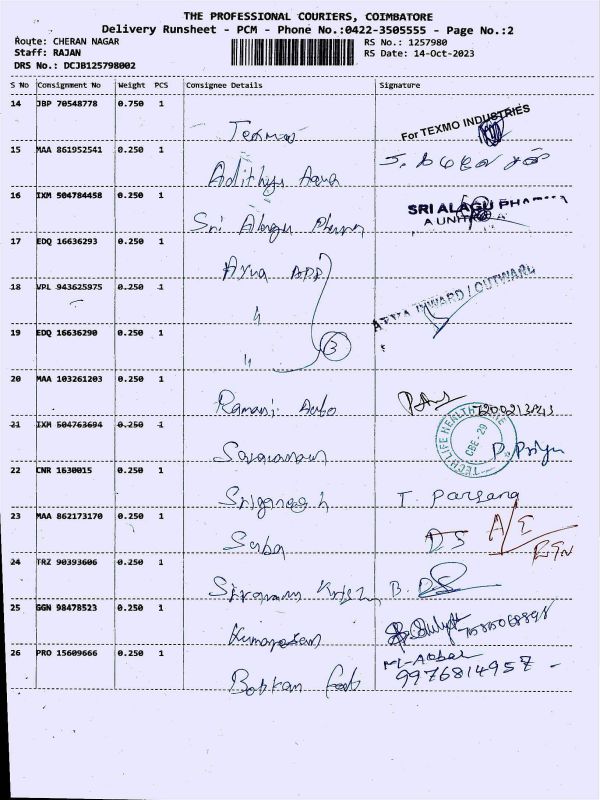 THE PROFESSIONAL COURIERS, COIMBATORE
Delivery Runsheet - PCM - Phone No.:0422-3505555 - Page No.:2
Route: CHERAN NAGAR RS No.: 1257980
Staff: RAJAN RS Date: 14-Oct-2023
DRS No.: DCJB125798002
S No Consignment No Weight PCS Consignee Details Signature
14 JBP 70548778 0.750 1
Texmo For TEXMO INDUSTRIES
15 MAA 861952541 0.250 1
Adithya
16 IXM 504784458 0.250 1 SRI ALAGU PHARMA
Sri Alagu Pharma A UNIT
17 EDQ 16636293 0.250 1
Ayua ADD
18 VPL 943625975 0.250 1 INWARD / OUTWARD
"
19 EDQ 16636290 0.250 1
" 3
20 MAA 103261203 0.250 1
Ramani Auto
21 IXM 504763694 0.250 1 TECH LIFE HEALTH CARE CBE - 29
Saravanan P. Priya
22 CNR 1630015 0.250 1
Sriganesh T. Parsana
23 MAA 862173170 0.250 1
Saba DS A/E RTN
24 TRZ 90393606 0.250 1
B. DS
25 GGN 98478523 0.250 1
Kumaresan
26 PRO 15609666 0.250 1 M-Acber
9976814957